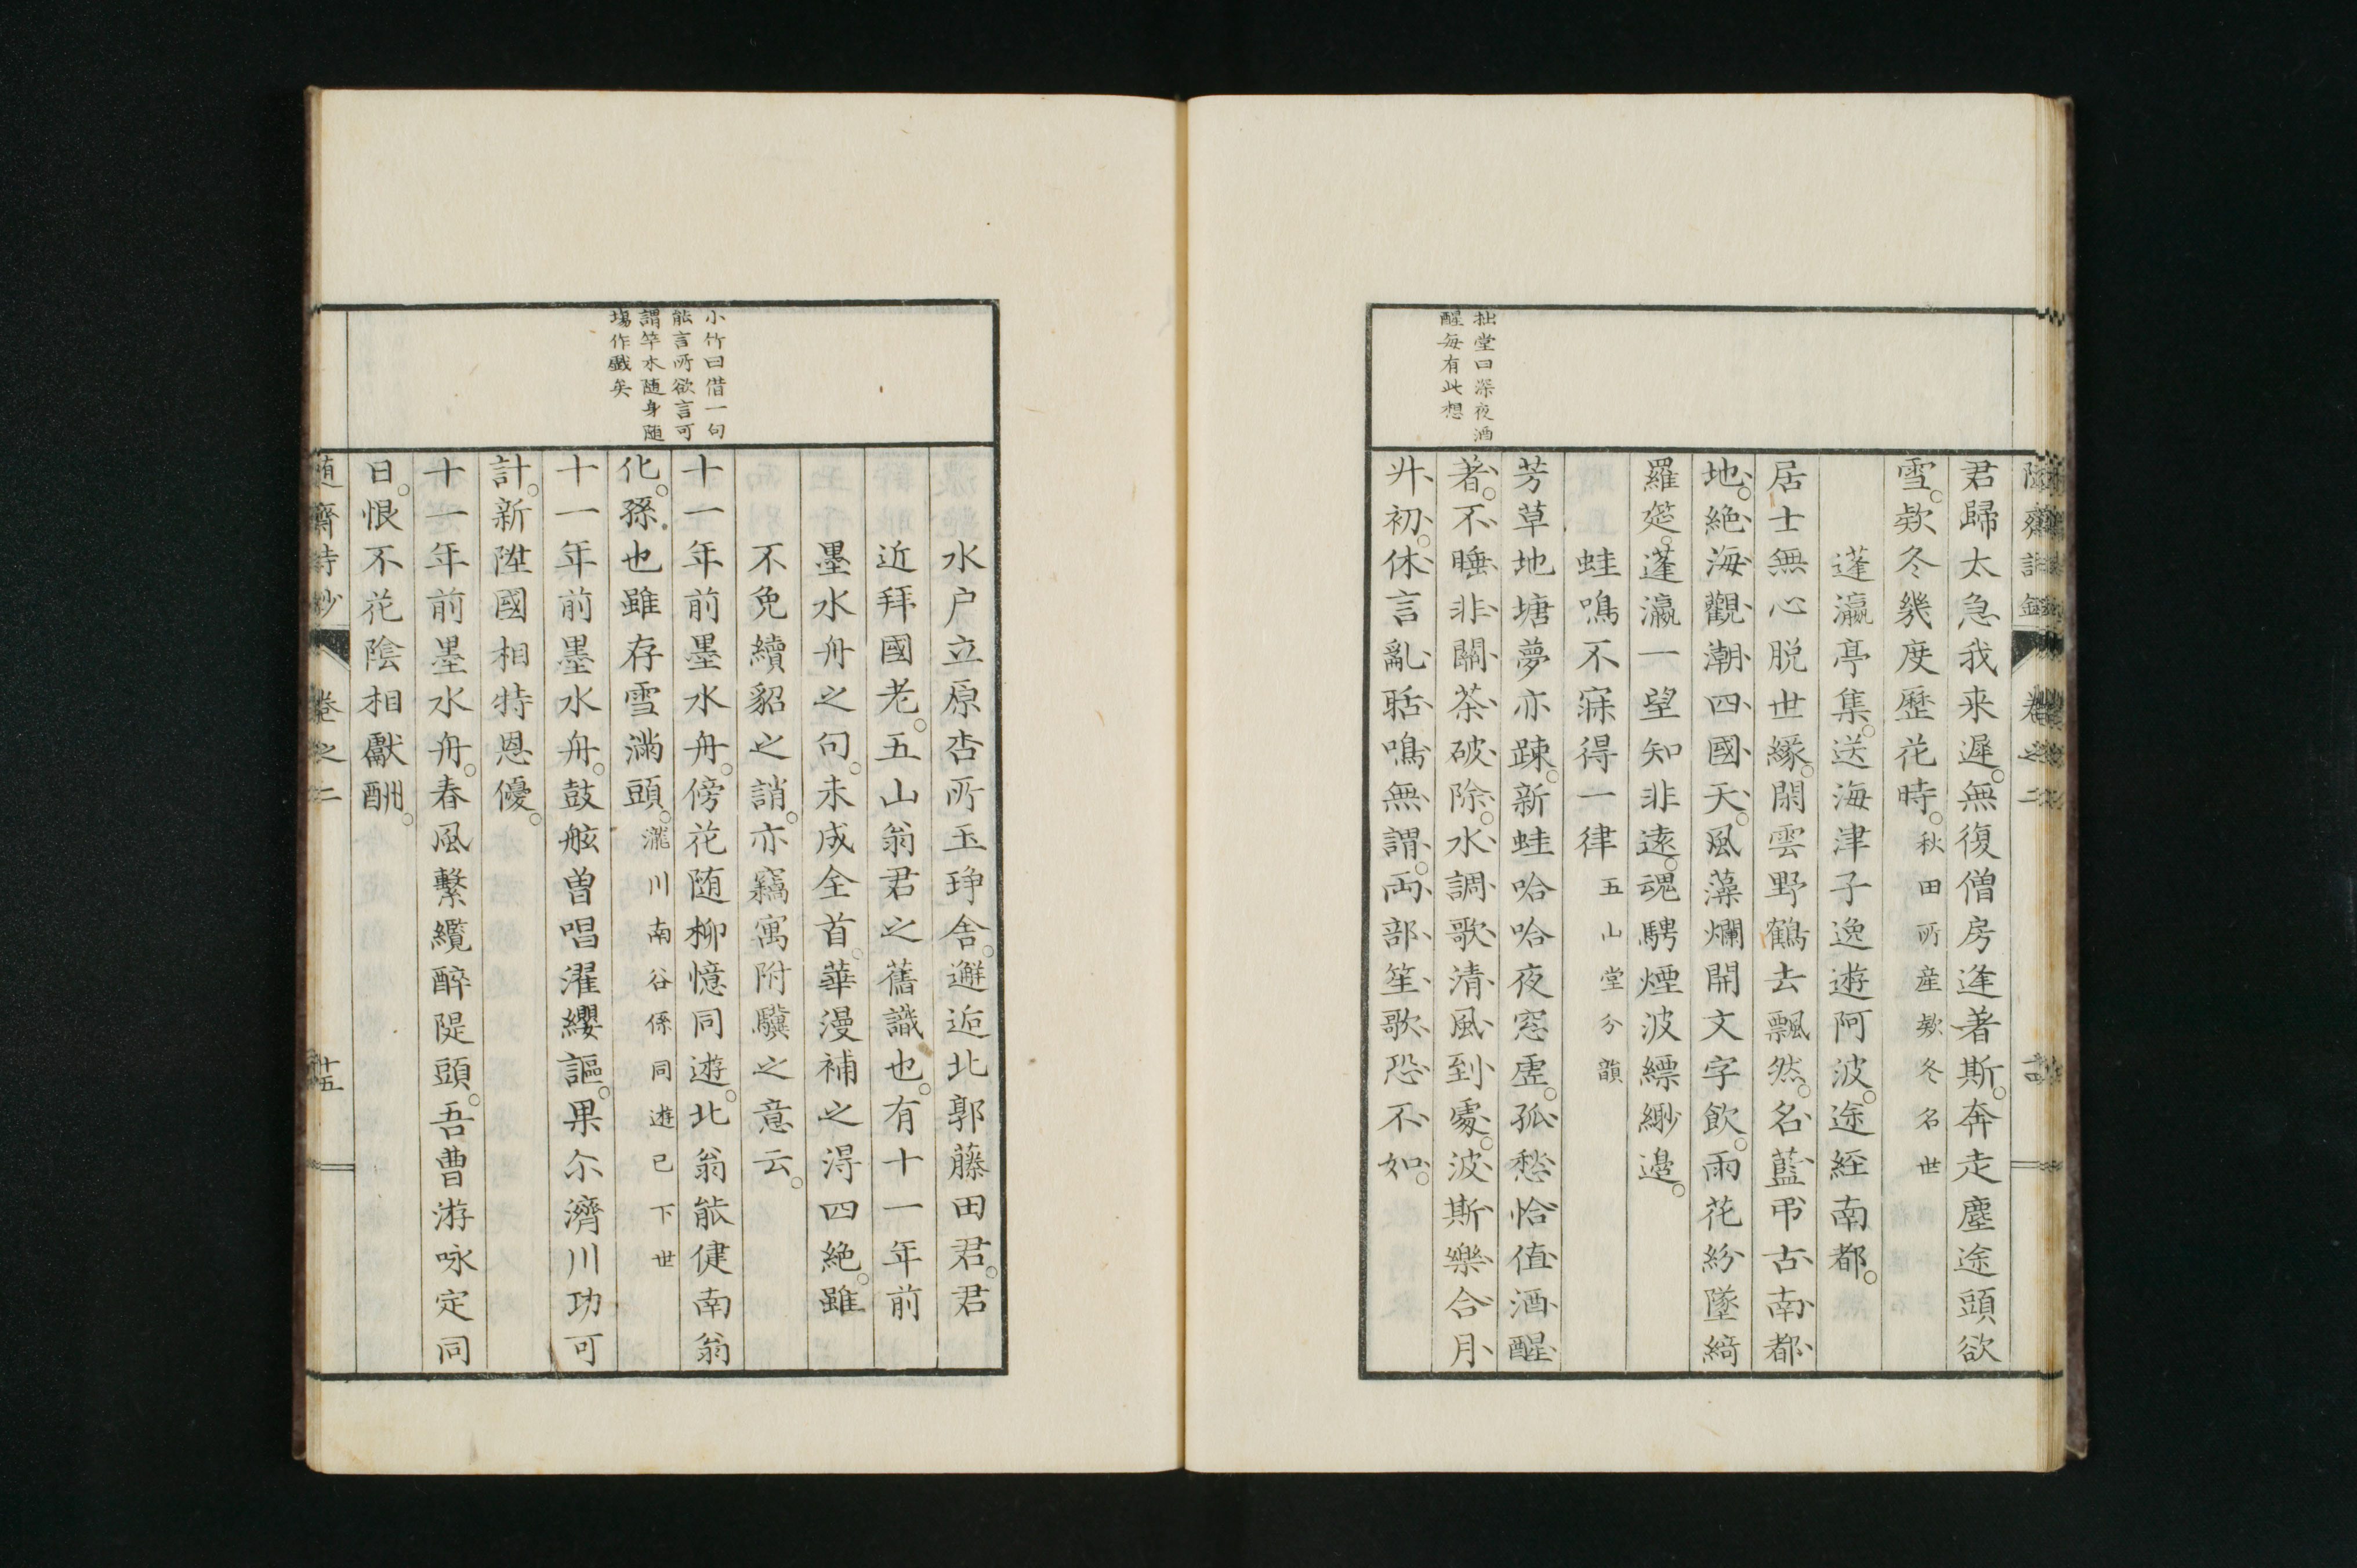 拙堂曰深夜酒
醒每有此想
君歸太急我来遲。無復僧房逢著斯。奔走塵途頭欲
雪。欵冬幾度歷花時。秋田所産欵冬名世
蓬瀛亭集。送海津子逸遊阿波。途経南都。
居士無心脱世緣。閑雲野鶴去飄然。名藍弔古南都
地。絶海觀潮四國天。風藻爛開文字飲。雨花紛墜綺
羅筵。蓬瀛一望知非遠。魂騁煙波縹緲邉。
蛙鳴不寐得一律五山堂分韻
芳草地塘夢亦踈。新蛙哈哈夜窓虚。孤愁恰值酒醒
著。不睡非關茶破除。水調歌清風到處。波斯樂合月
廾初。休言亂聒鳴無謂。両部笙歌恐不如。
小竹曰借一句
能言所欲言可
謂竿木随身随
塲作戲矣
水户立原杏所玉琤舎。邂逅北郭藤田君。君
近拜國老。五山翁君之舊識也。有十一年前
墨水舟之句。未成全首。華漫補之淂四絶。雖
不免續貂之誚。亦竊寓附驥之意云。
十一年前墨水舟。傍花随柳憶同遊。北翁能健南翁
化。孫也雖存雪滿頭。瀧川南谷係同遊已下世
十一年前墨水舟。鼓舷曽唱濯纓謳。果尓濟川功可
計。新陞國相特恩優。
十一年前墨水舟。春風繫纜醉隄頭。吾曹游咏定同
日。恨不花陰相獻酬。
随齋詩鈔
卷之二
十五